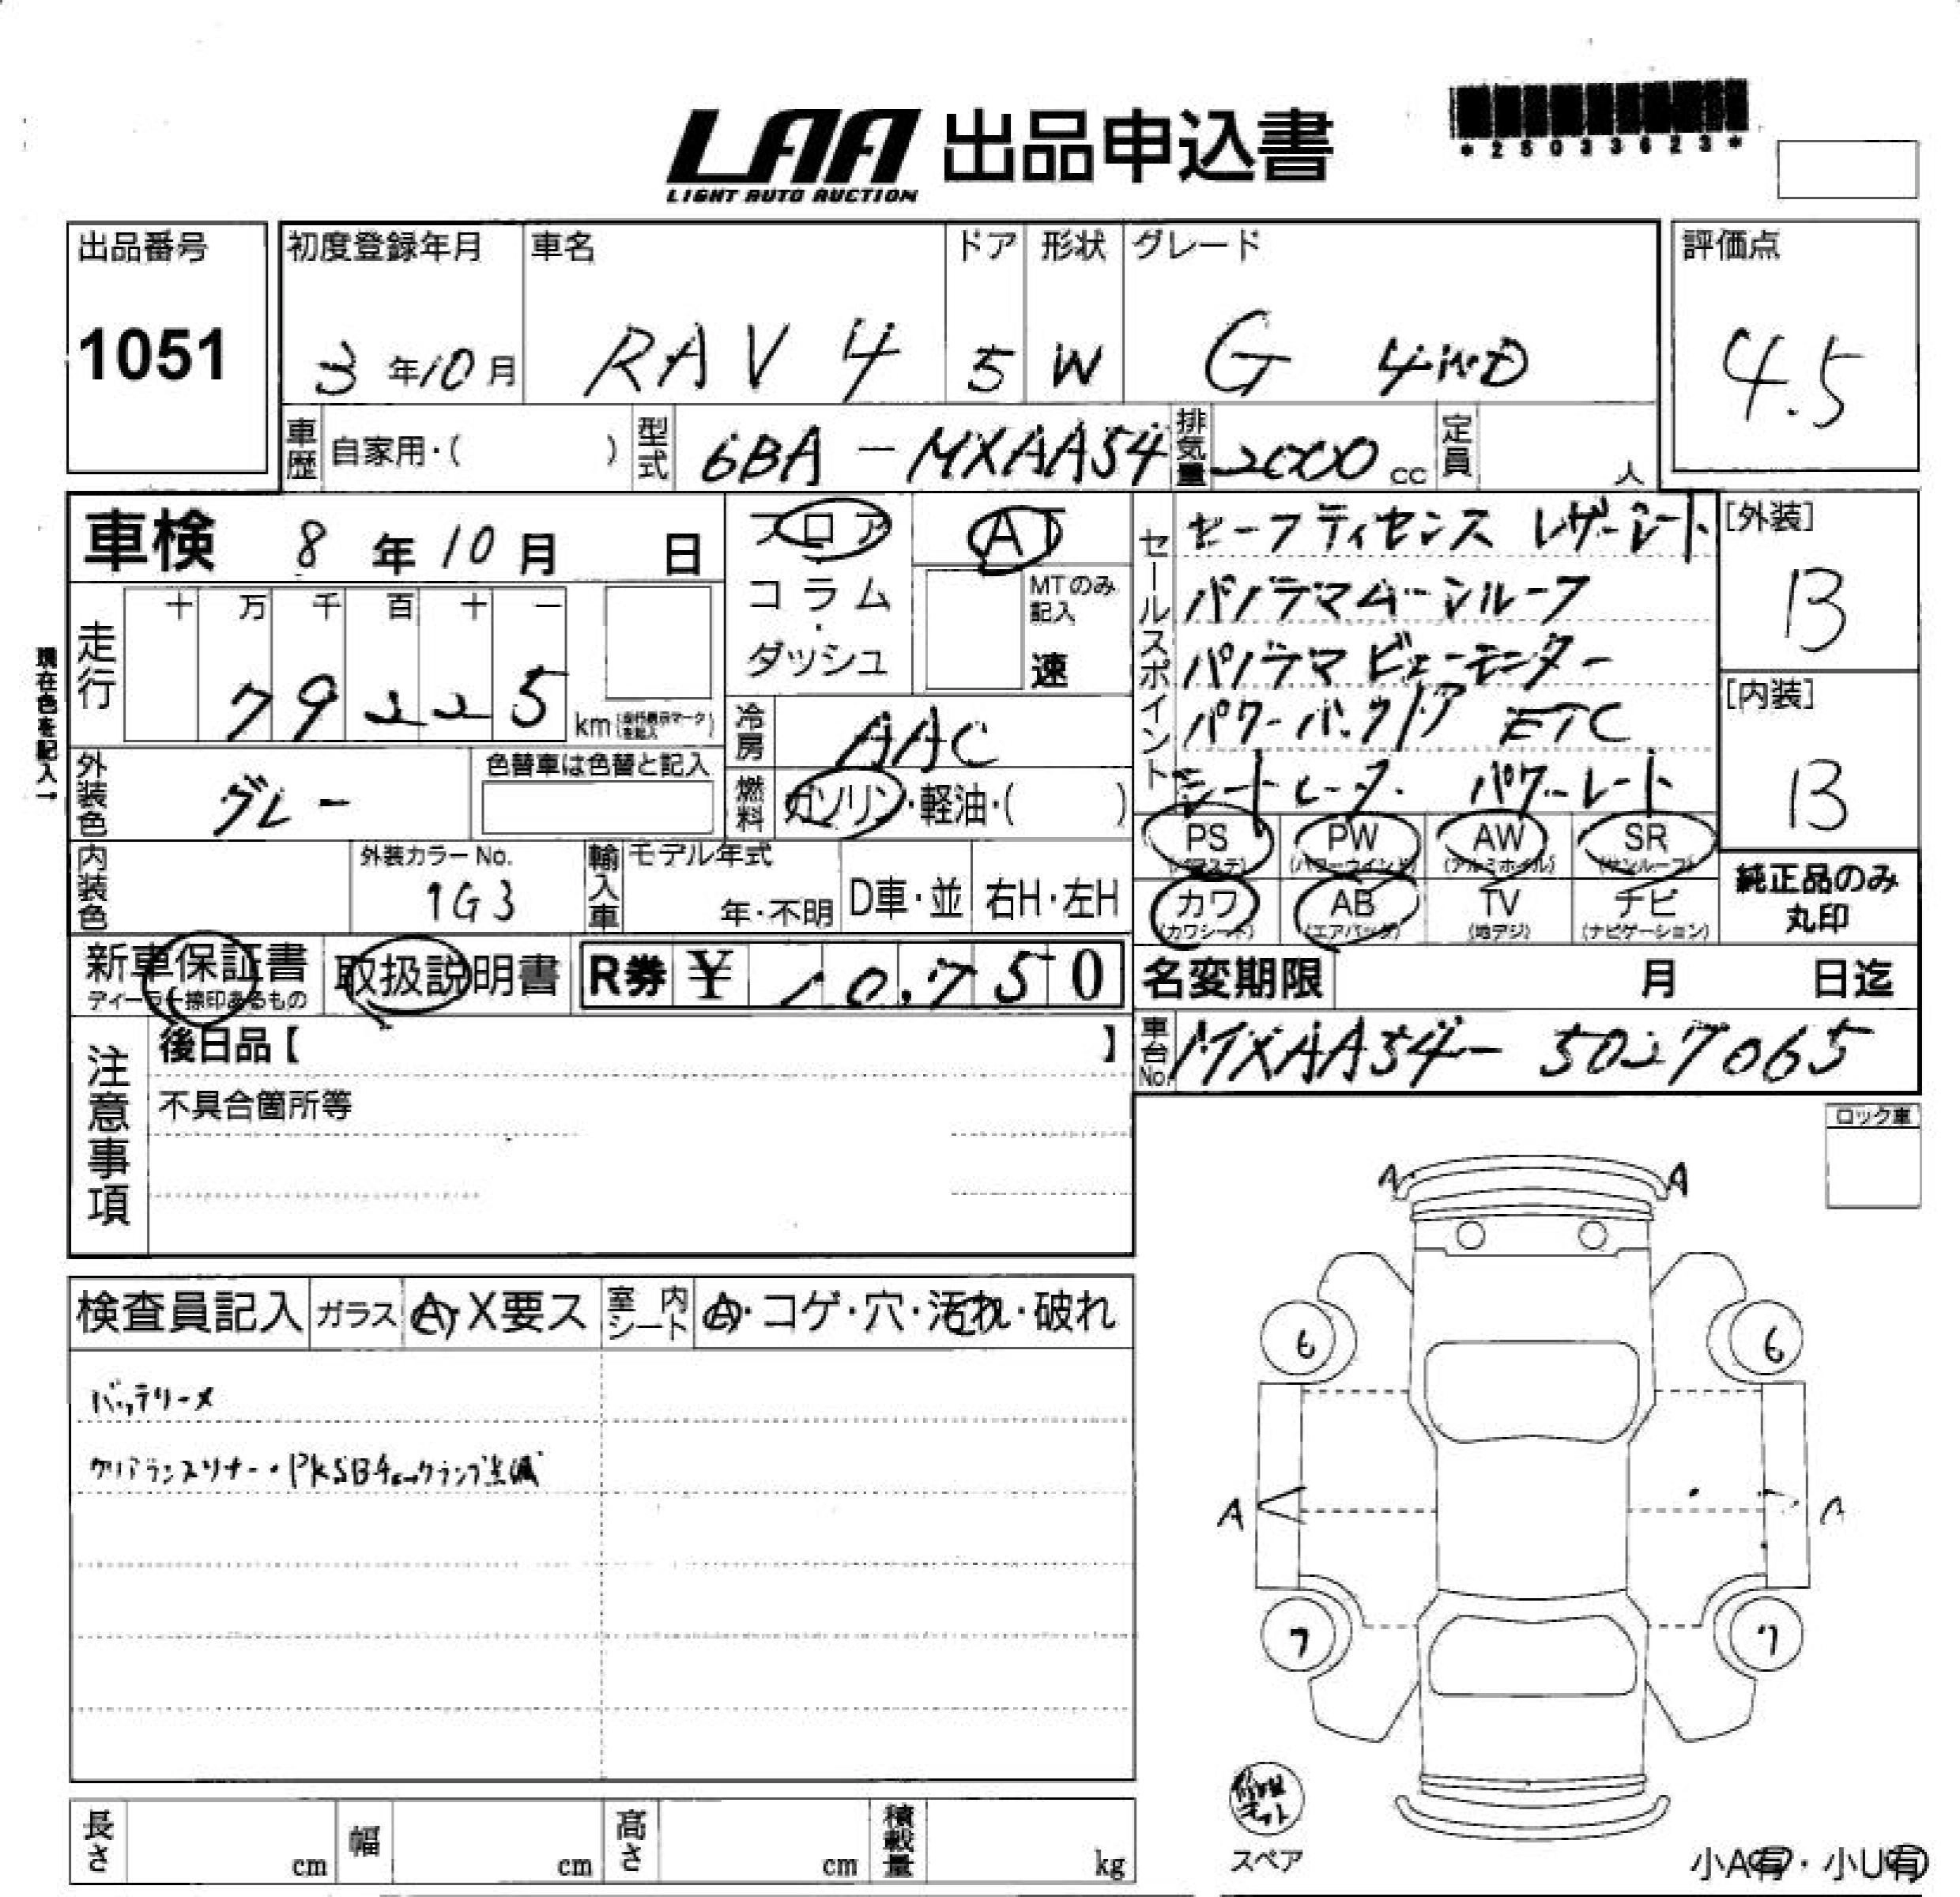 LAA 出品申込書
LIGHT AUTO AUCTION
*25033623*
出品番号
1051
初度登録年月
3年10月
車名
RAV4
ドア
5
形状
W
グレード
G 4WD
評価点
4.5
車歴 自家用・( )
型式 6BA-MXAA54
排気量 2000cc
定員 人
車検 8年10月 日
現在色を記入→
走行 十 万 千 百 十 一
79225 km
フロア
コラム・ダッシュ
AT
MTのみ記入
速
冷房 AAC
燃料 ガソリン・軽油・( )
外装色 グレー
色替車は色替と記入
内装色
外装カラーNo.
1G3
輸入車
モデル年式
年・不明
D車・並
右H・左H
セールスポイント
セーフティセンス レザーシート
パノラマムーンルーフ
パノラマビューモニター
パワーバックドア ETC
シートヒーター パワーシート
[外装]
B
[内装]
B
PS
(パワステ)
PW
(パワーウインド)
AW
(アルミホイル)
SR
(サンルーフ)
カワ
(カワシート)
AB
(エアバッグ)
TV
(地デジ)
ナビ
(ナビゲーション)
純正品のみ
丸印
新車保証書
ディーラー捺印あるもの
取扱説明書
R券 ¥ 10,750
名変期限 月 日迄
車台No. MXAA54-5027065
注意事項
後日品【 】
不具合箇所等
ロック車
検査員記入
ガラス A・X要ス
室内シート A・コゲ・穴・汚れ・破れ
バッテリーメ
クリアランスソナー・PKSBチェックランプ点滅
A
A
6
6
A
A
7
7
修理キット
スペア
小A有・小U有
長さ cm
幅 cm
高さ cm
積載量 kg